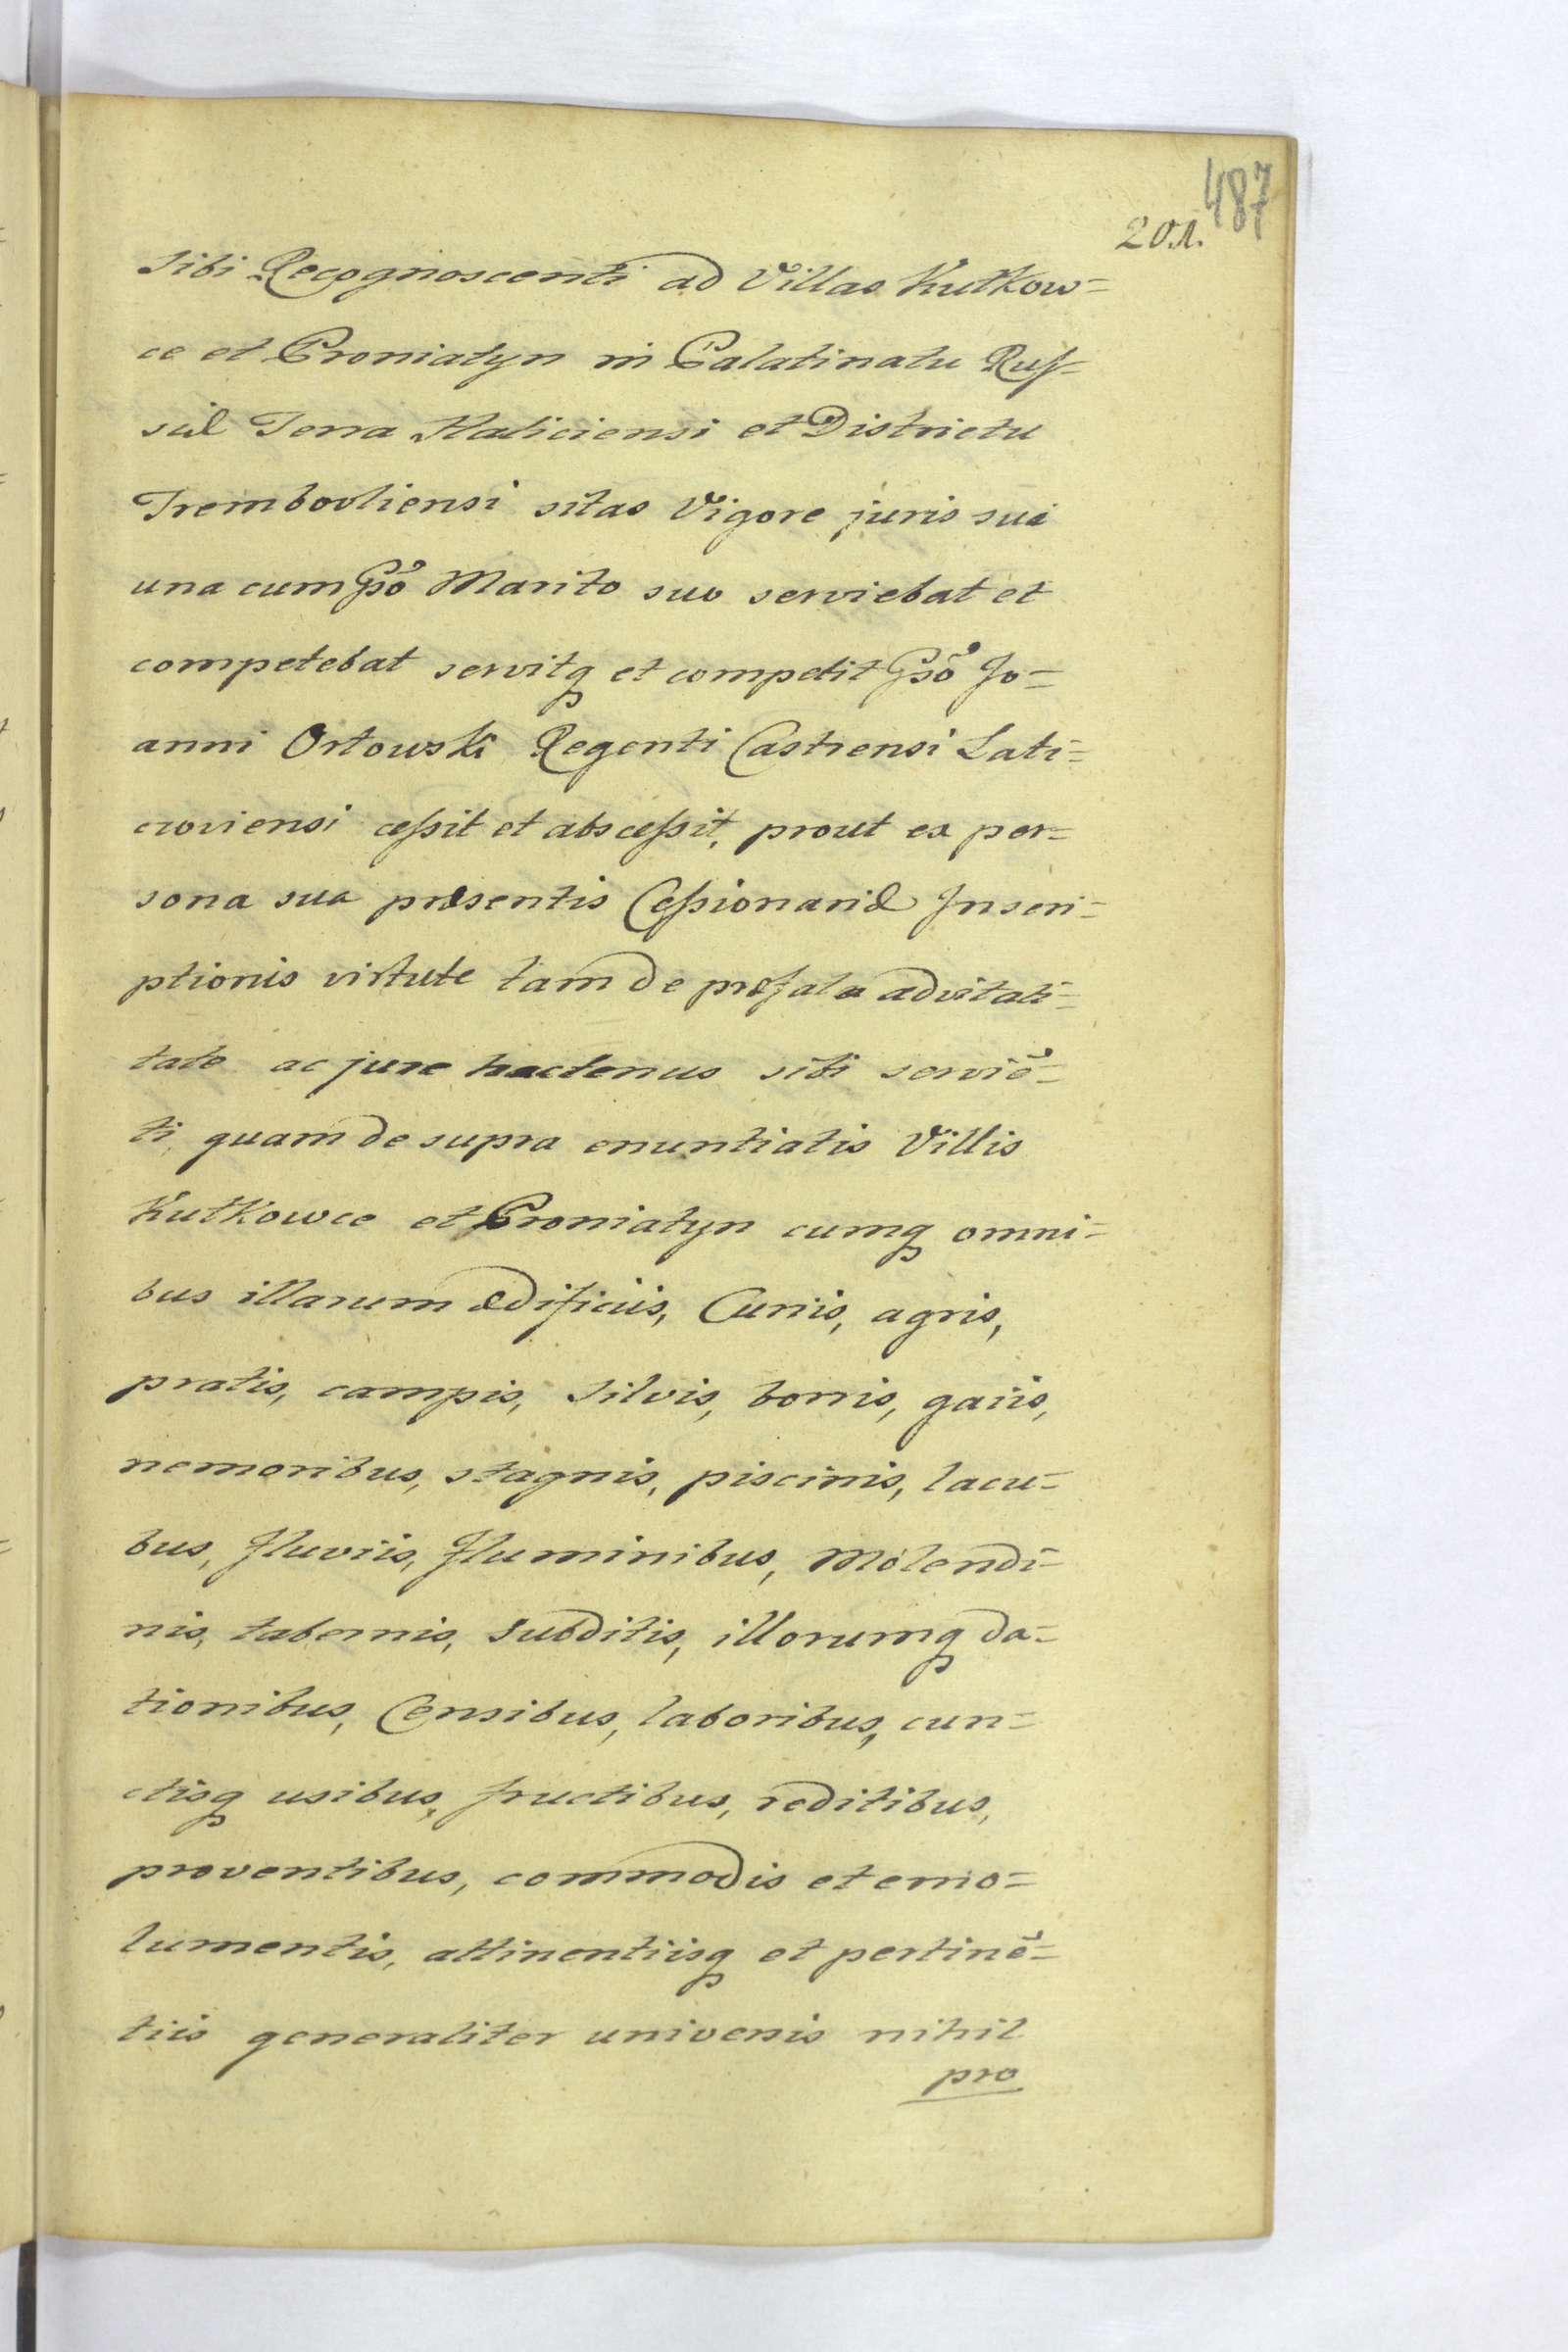 487
201.
sibi Recognoscenti ad Villas Kutkow=
ce et Proniatyn in Palatinatu Rus=
siæ Terra Haliciensi et Districtu
Trembovliensi sitas Vigore juris sui
una cum Gsõ Marito suo serviebat et
competebat servitq et competit Gsõ Jo=
anni Orłowski Regenti Castrensi Lati=
czoviensi cessit et abscessit, prout ex per=
sona sua præsentis Cessionariæ Inscri=
ptionis virtute tam de præfata advitali=
tate ac jure hactenus sibi serviẽ=
ti quam de supra enuntiatis Villis
Kutkowce et Proniatyn cumq omni=
bus illarum ædificiis, Curiis, agris,
pratis, campis, silvis, borris, gaiis,
nemoribus, stagnis, piscinis, lacu=
bus, fluviis, fluminibus, Molendi=
nis, tabernis, subditis, illorumq da=
tionibus, Censibus, laboribus, cun=
ctisq usibus, fructibus, reditibus,
proventibus, commodis et emo=
lumentis, attinentiisq et pertinẽ=
tiis generaliter universis nihil
pro